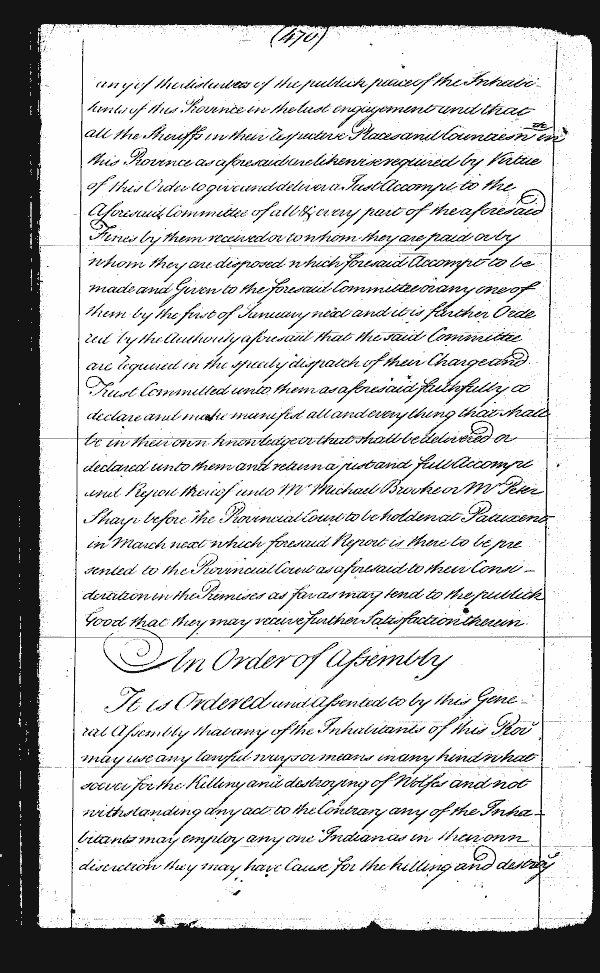 (470)
any of the disturbers of the publick peace of the Inhabi-
tants of this Province in the last engagement and that
all the Sheriffs in their respective Places and Counties wth in
this Province as aforesaid are likewise required by Virtue
of this Order to give and deliver a Just Accompt to the
Aforesaid Committee of all & every part of the aforesaid
Fines by them received or to whom they are paid or by
whom they are disposed which foresaid Accompt to be
made and Given to the foresaid Committee or any one of
them by the first of January next and it is further Orde
red by the Authority aforesaid that the said Committee
are required in the speedy dispatch of their Charge and
Trust Committed unto them as aforesaid faithfully to
declare and make manifest all and every thing that shall
be in their own knowledge or that shall be delivered or
declared unto them and return a just and full Accompt
and Report thereof unto Mr Michael Brooke or Mr Peter
Sharp before the Provincial Court to be holden at Patuxent
in March next which foresaid Report is there to be pre
sented to the Provincial Court as aforesaid to their Consi-
deration in the Premises as far as may tend to the publick
Good that they may receive further Satisfaction therein
An Order of Assembly
It is Ordered and Assented to by this Gene-
ral Assembly that any of the Inhabitants of this Prov
may use any lawful ways or means in any kind what
soever for the Killing and destroying of Wolfes and not
withstanding any act to the Contrary any of the Inha-
bitants may employ any one Indian as in their own
discretion they may have Cause for the killing and destroy